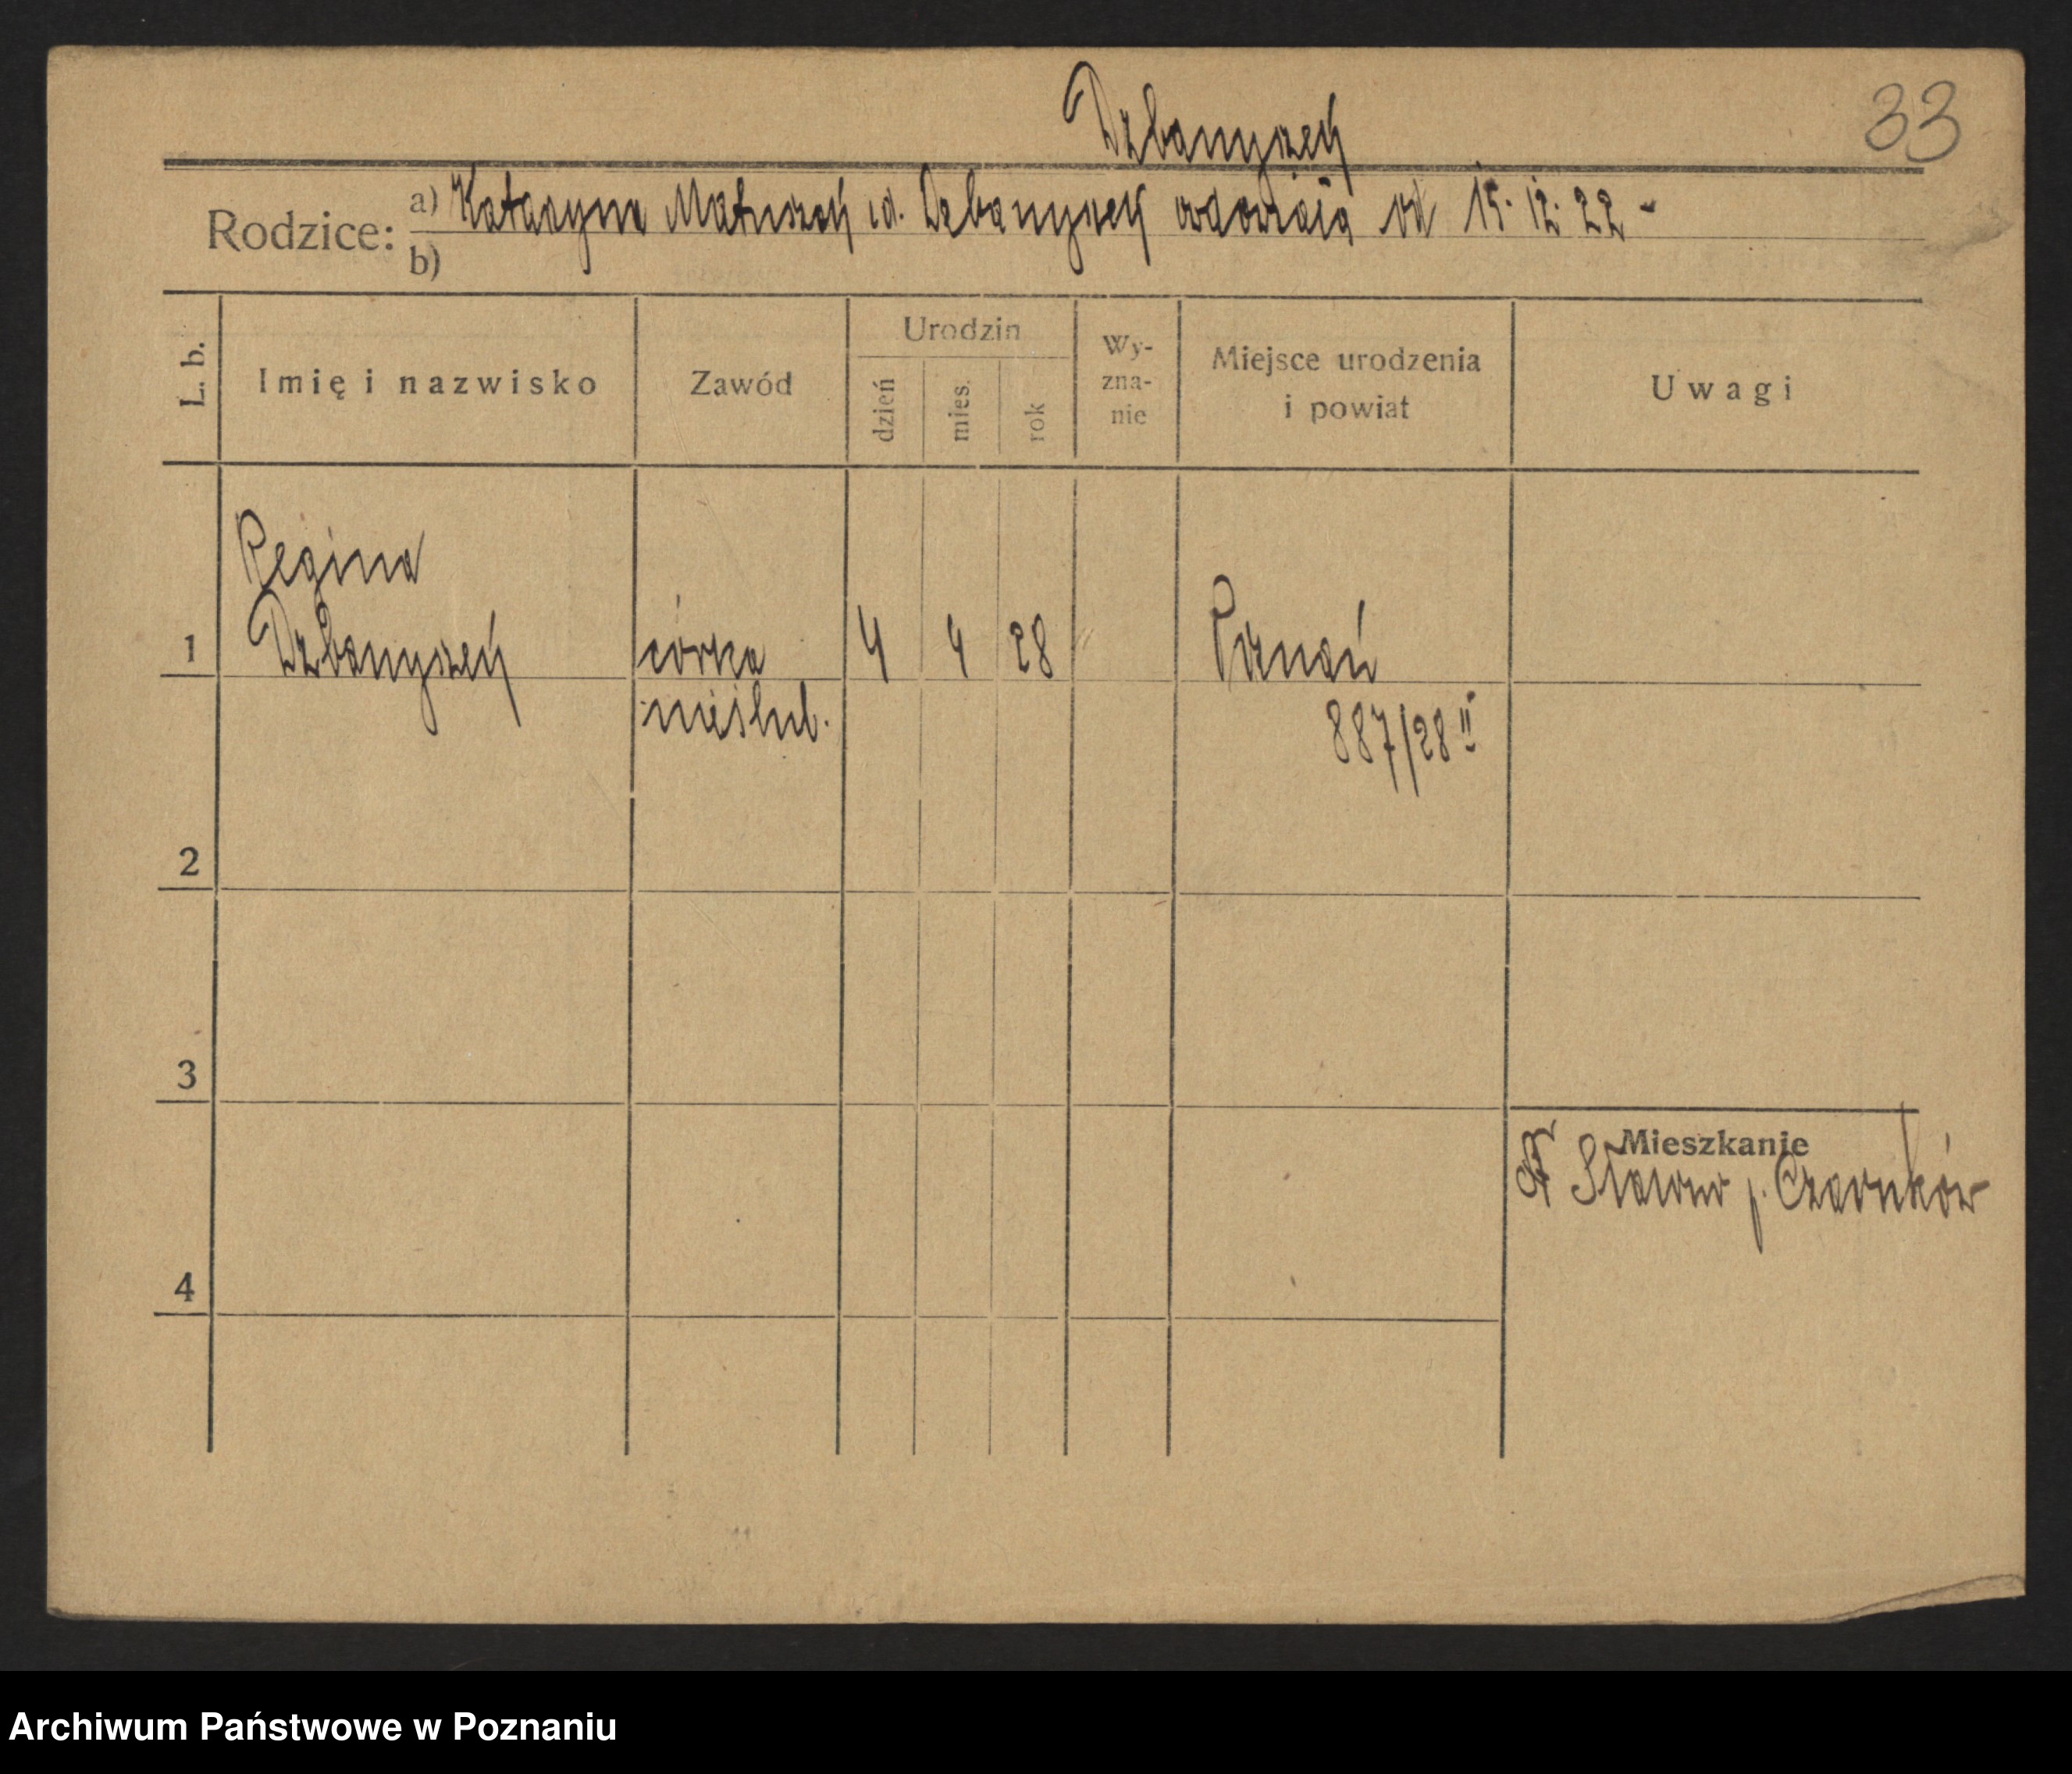 Dzbanyszek
33
Rodzice:
a) Katarzyna Matuszak id. Dzbanyszek od 15. 12. 22 -
b)
L. b.
Imię i nazwisko
Zawód
Urodzin
dzień
mies.
rok
Wy-
zna-
nie
Miejsce urodzenia
i powiat
Uwagi
Regina
1 Dzbanyszek córka 4 4 28 Poznań
nieślub.
887/28 II
2
3
4
Mieszkanie
Sławno p. Czarnków
Archiwum Państwowe w Poznaniu